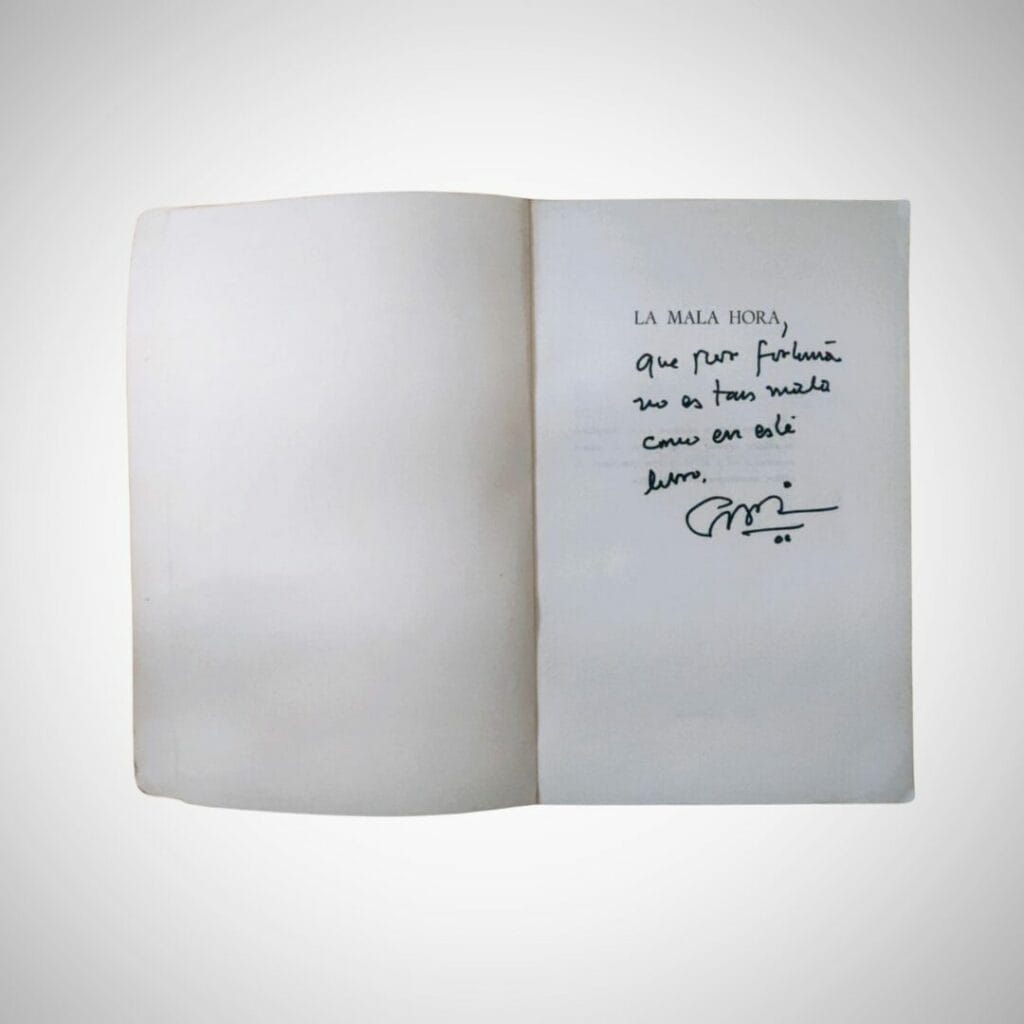 LA MALA HORA,
que por fortuna
no es tan mala
como en este
libro.